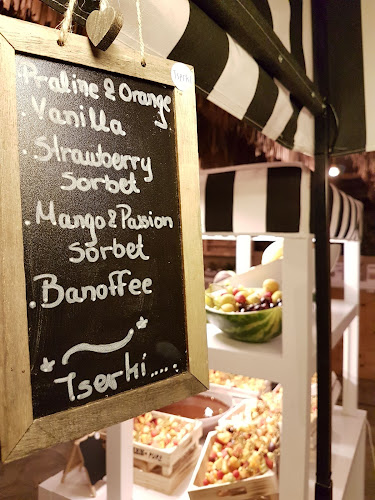 Tserki
Praline & Orange
. Vanilla
. Strawberry
Sorbet
. Mango & Passion
Sorbet
. Banoffee
Tserki.....